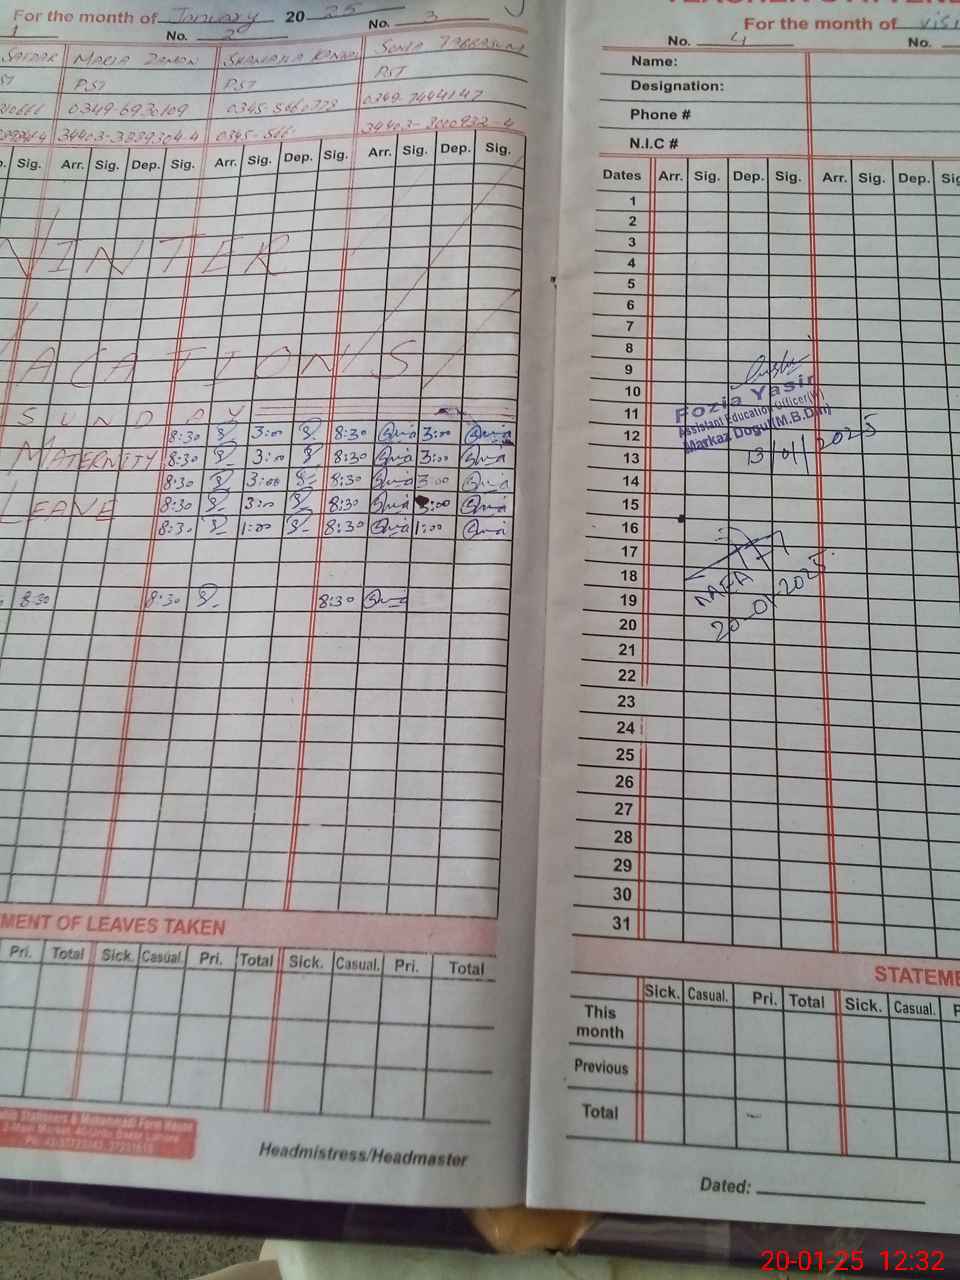 For the month of January 2025
1 No. 2 No. 3
MARIA ZAMAN SHAMAILA KANWAL SONIA TABBASUM
PST PST PST
0349-6930109 0345-5660778 0349-7444147
34403-3839304-4 0345-566 34403-3000932-4
Sig. Arr. Sig. Dep. Sig. Arr. Sig. Dep. Sig. Arr. Sig. Dep. Sig.
WINTER
VACATIONS
SUNDAY
8:30 3:00 8:30 3:00
MATERNITY 8:30 3:00 8:30 3:00
8:30 3:00 8:30 3:00
LEAVE 8:30 3:00 8:30 3:00
8:30 1:00 8:30 1:00
8:30 8:30 8:30
MENT OF LEAVES TAKEN
Pri. Total Sick. Casual. Pri. Total Sick. Casual. Pri. Total
Headmistress/Headmaster
For the month of
No. 4 No.
Name:
Designation:
Phone #
N.I.C #
Dates Arr. Sig. Dep. Sig. Arr. Sig. Dep. Sig
1
2
3
4
5
6
7
8
9
10
11
12
13
14
15
16
17
18
19
20
21
22
23
24
25
26
27
28
29
30
31
Fozia Yasir
Assistant Education Officer(W)
Markaz Dogul(M.B.Din)
13/01/2025
MEA
20-01-2025
STATEME
Sick. Casual. Pri. Total Sick. Casual. P
This
month
Previous
Total
Dated:
20-01-25 12:32